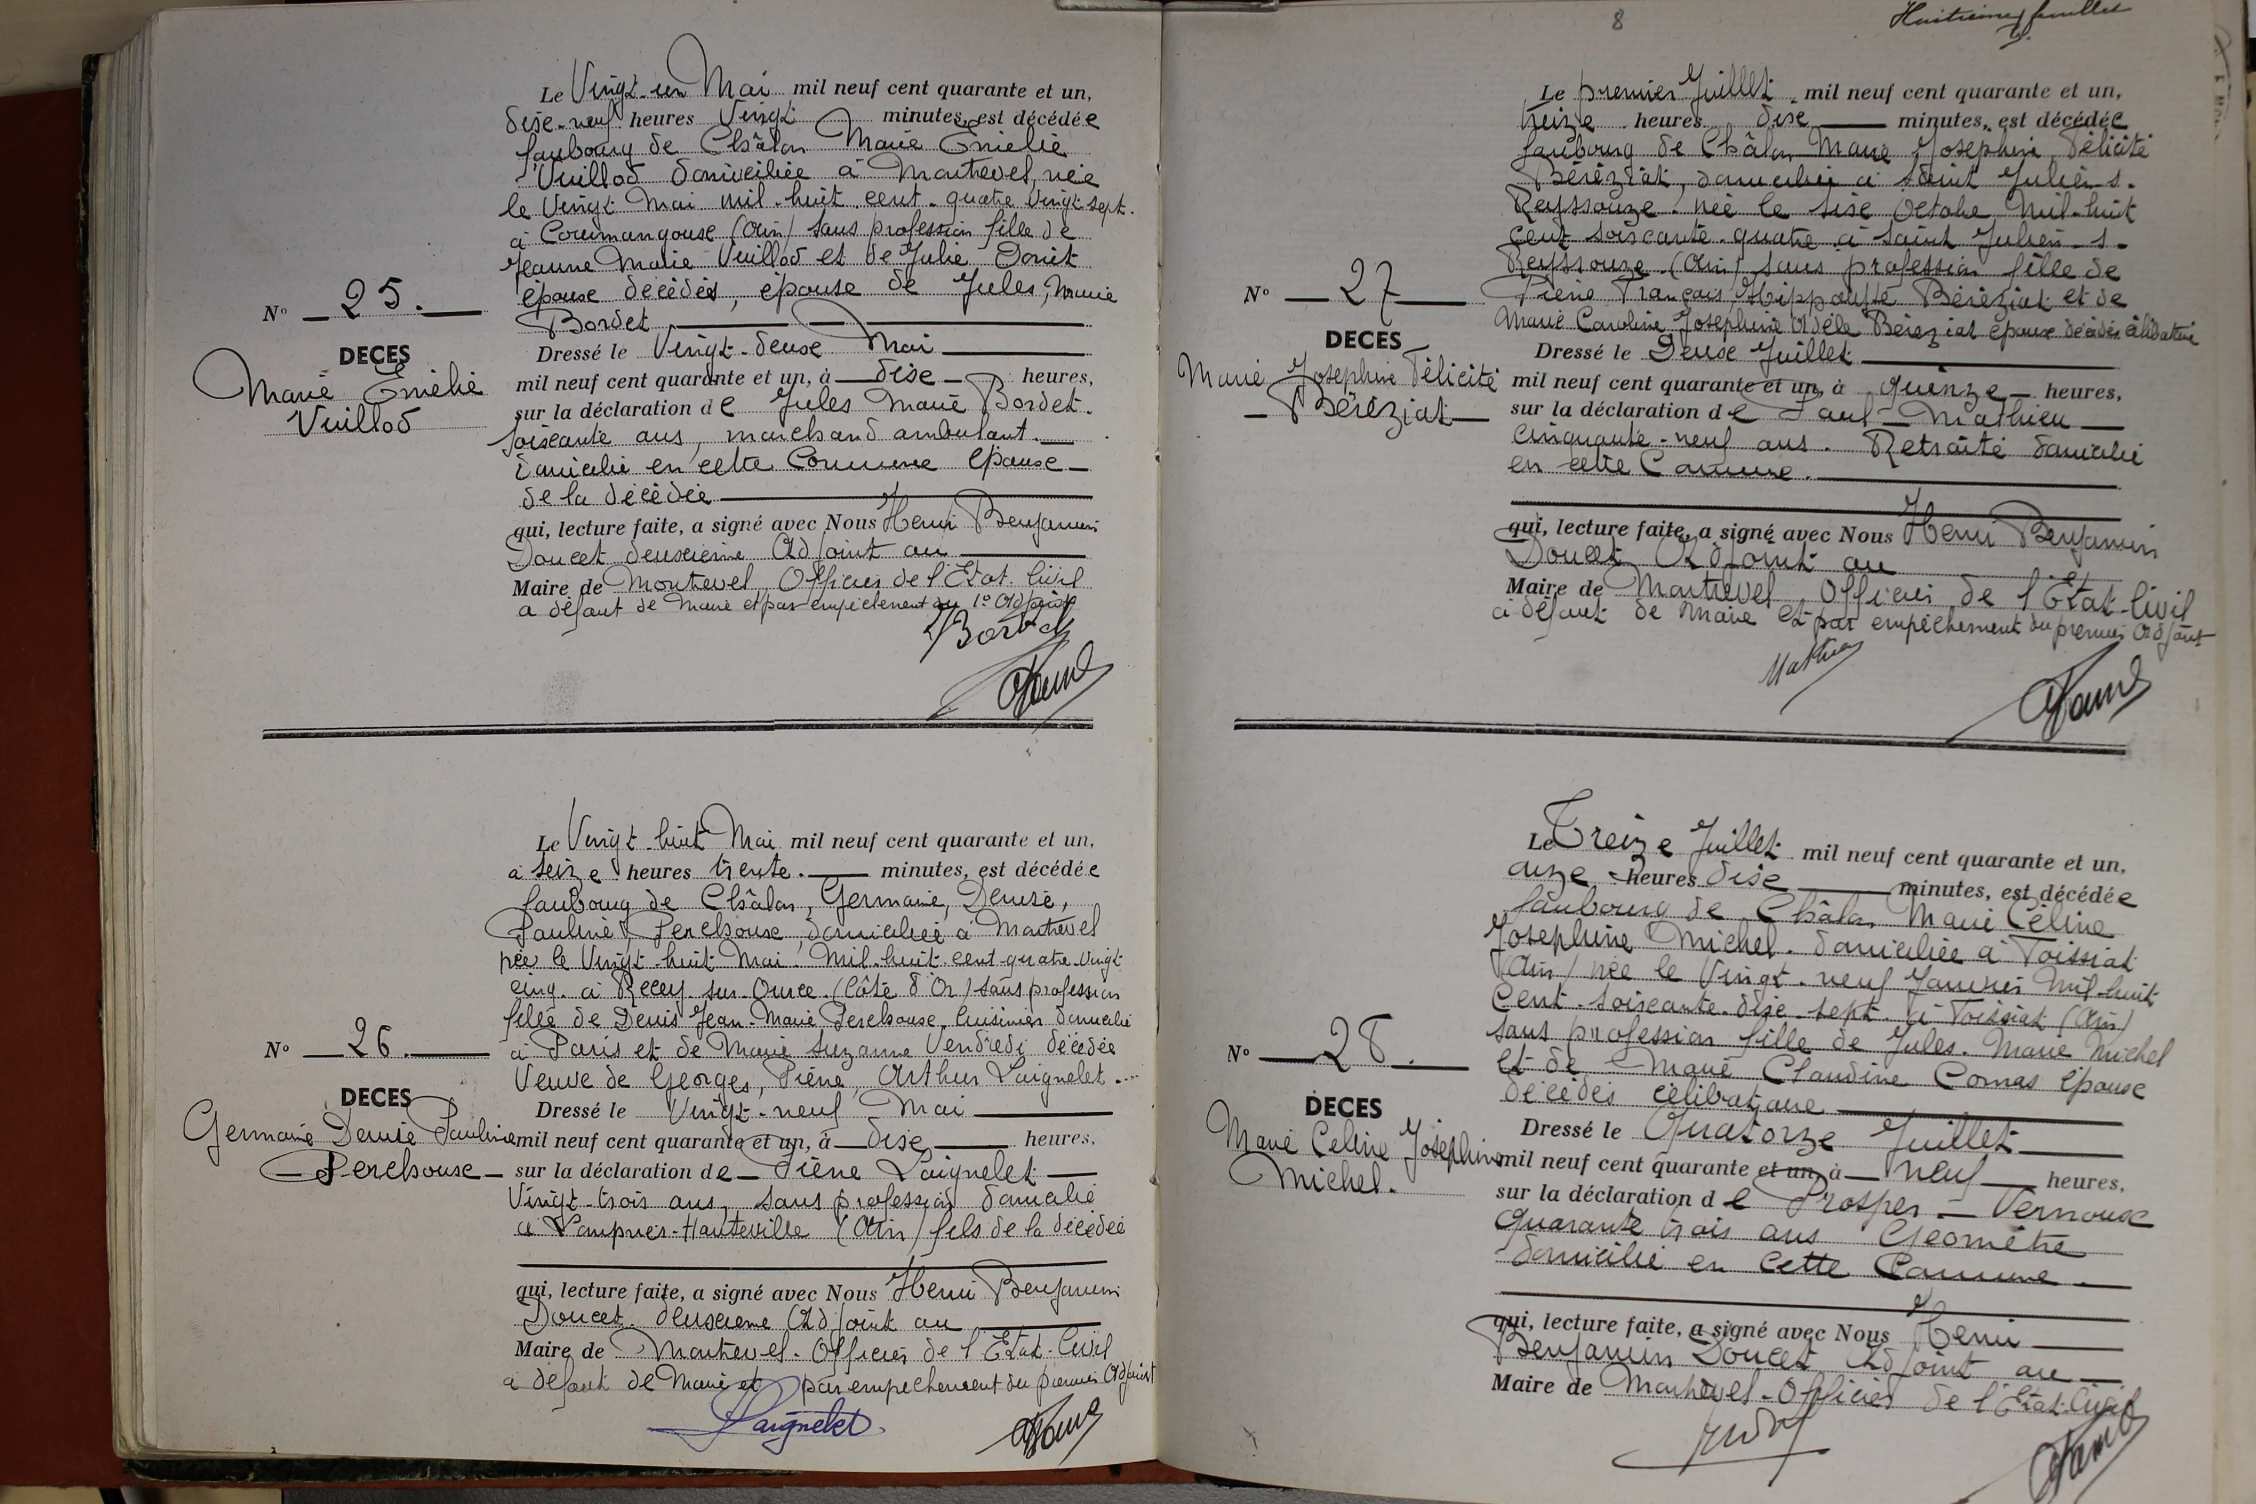 Le Vingt-un Mai mil neuf cent quarante et un,
dix-neuf heures Vingt minutes, est décédée
faubourg de Châlon Marie Emélie
Vuillod domiciliée à Montrevel, née
le Vingt Mai mil-huit-cent-quatre Vingt sept.
à Courmangoux (Ain) sans profession fille de
Jeanne Marie Vuillod et de Julie Donit
épouse décédés, épouse de Jules, Marie
Bordet
N° 25.
DECES
Marie Emélie
Vuillod
Dressé le Vingt-deux Mai
mil neuf cent quarante et un, à dix heures,
sur la déclaration de Jules Marie Bordet.
soixante ans, marchand ambulant.
domicilié en cette Commune épouse
de la décédée
qui, lecture faite, a signé avec Nous Henri Benjamin
Doucet deuxième Adjoint au
Maire de Montrevel Officier de l'Etat-Civil
a défaut de Maire et par empêchement du 1er Adjoint
Bordet
Le Vingt-huit Mai mil neuf cent quarante et un,
à seize heures trente. minutes, est décédée
faubourg de Châlon, Germaine, Denise,
Pauline, Perchouse, domiciliée à Montrevel
née le Vingt-huit Mai Mil-huit-cent-quatre-vingt
cinq. à Recey-sur-Ource (Côte d'Or) sans profession
fille de Denis Jean-Marie Perchouse, Cuisinier domicilié
à Paris et de Marie Suzanne Vendredi décédée
Veuve de Georges, Piêne, Arthur Laignelet.
N° 26.
DECES
Germaine Denise Pauline
Perchouse
Dressé le Vingt-neuf Mai
mil neuf cent quarante et un, à dix heures,
sur la déclaration de Piêne Laignelet
Vingt-trois ans, sans profession domicilié
a Lompnès-Hauteville (Ain) fils de la décédée
qui, lecture faite, a signé avec Nous Henri Benjamin
Doucet. deuxième Adjoint au
Maire de Montrevel-Officier de l'Etat-Civil
a défaut de Maire et par empêchement du premier Adjoint
Laignelet
8
Huitième feuillet
Le premier Juillet mil neuf cent quarante et un,
treize heures dix minutes, est décédée
faubourg de Châlon Marie Josephine Félicité
Béréziat, domiciliée à Saint Julien s.
Reyssouze. née le six Octobre Mil-huit
cent soixante-quatre à Saint Julien-s-
Reyssouze (Ain) sans profession fille de
Piêne François Hippolyte Béréziat et de
Marie Caroline Josephine Adèle Béréziat épouse décédés célibataire
N° 27
DECES
Marie Josephine Félicité
Béréziat
Dressé le Deux Juillet
mil neuf cent quarante et un, à quinze heures,
sur la déclaration de Paul-Mathieu
cinquante-neuf ans. Retraité domicilié
en cette Commune.
qui, lecture faite, a signé avec Nous Henri Benjamin
Doucet Adjoint au
Maire de Montrevel Officier de l'Etat-Civil
à défaut de Maire et par empêchement du premier Adjoint
Mathieu
Le Treize Juillet mil neuf cent quarante et un,
onze heures dix minutes, est décédée
faubourg de Châlon Marie Céline
Josephine Michel. domiciliée à Foissiat
(Ain) née le Vingt-neuf Janvier Mil-huit
Cent-soixante-dix-sept. à Foissiat (Ain)
sans profession fille de Jules. Marie Michel
et de Marie Claudine Comas épouse
décédés célibataire
N° 28.
DECES
Marie Celine Joséphine
Michel.
Dressé le Quatorze Juillet
mil neuf cent quarante et un, à neuf heures,
sur la déclaration de Prosper-Vernoux
Quarante trois ans Géomètre
domicilié en cette Commune.
qui, lecture faite, a signé avec Nous Henri
Benjamin Doucet Adjoint au
Maire de Montrevel-Officier de l'Etat-Civil